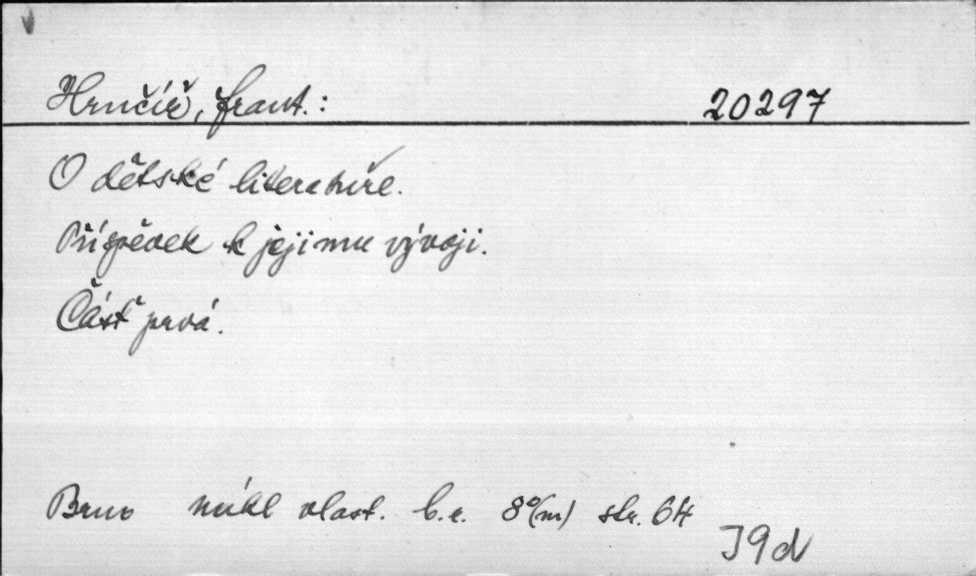 Hrnčíř, Frant.: 20297
O dětské literatuře.
Příspěvek k jejímu vývoji.
Část prvá.
Brno nákl vlast. b.r. 8°(m) str. 64
J9d